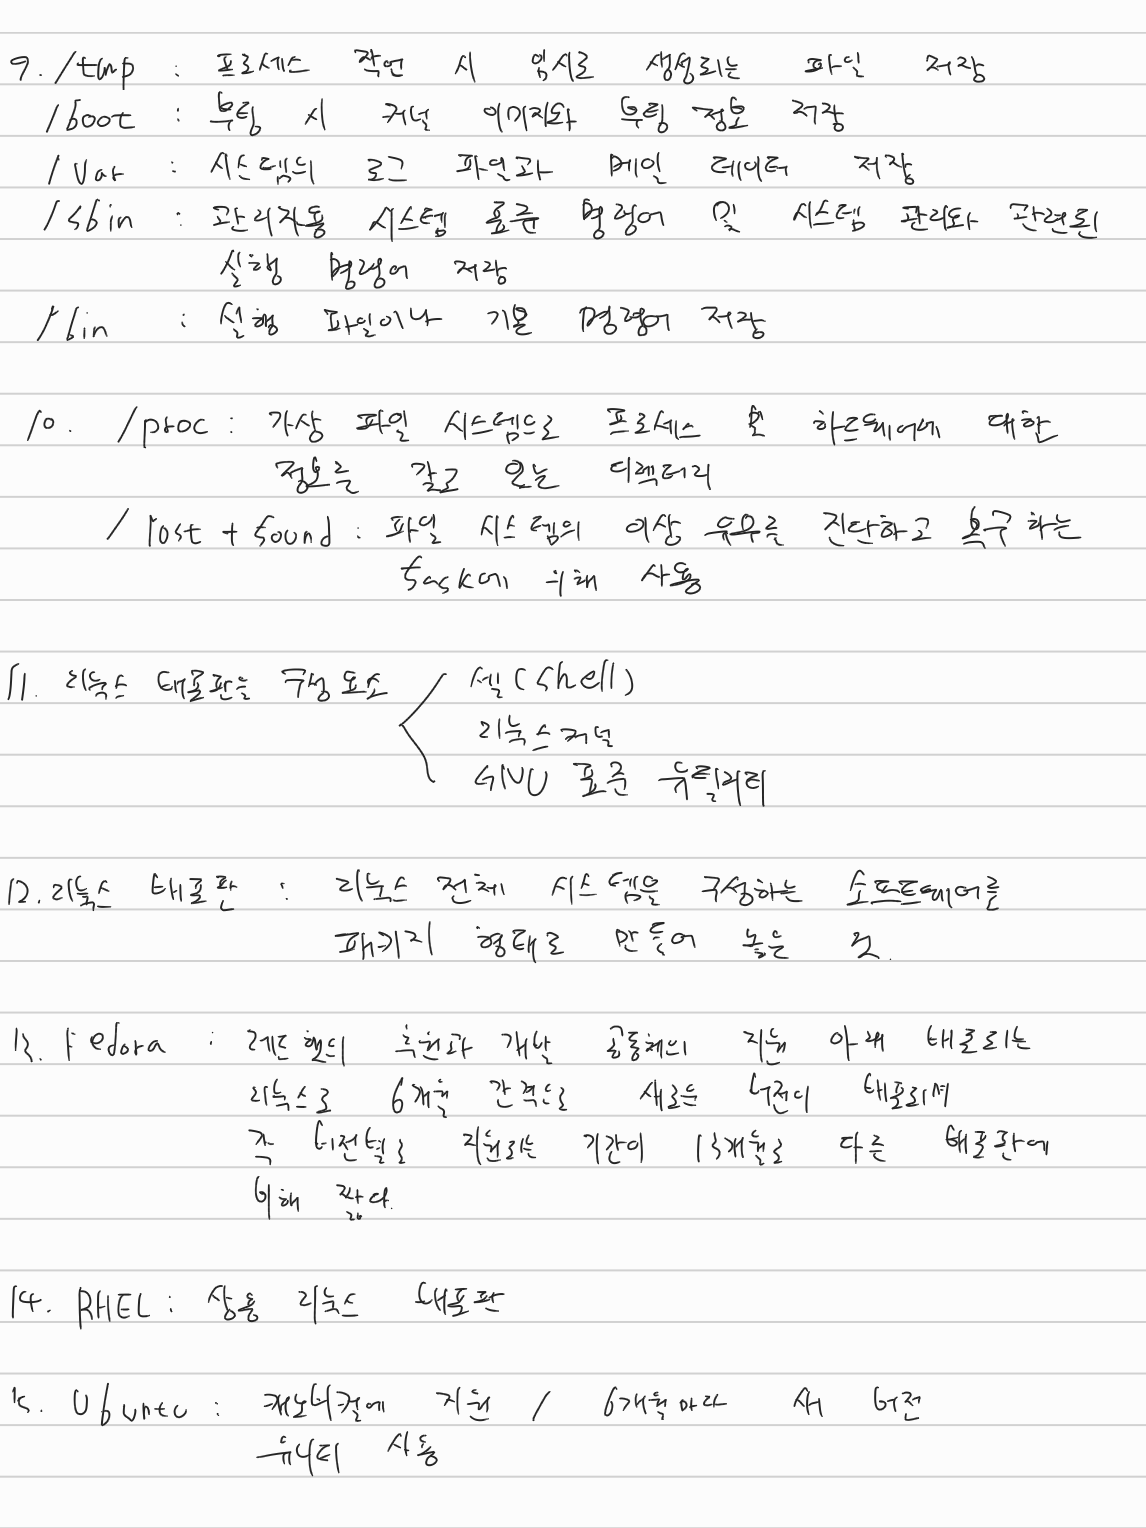 9. /tmp : 프로세스 작업 시 임시로 생성되는 파일 저장
/boot : 부팅 시 커널 이미지와 부팅 정보 저장
/var : 시스템의 로그 파일과 메일 데이터 저장
/sbin : 관리자용 시스템 표준 명령어 및 시스템 관리와 관련된
실행 명령어 저장
/bin : 실행 파일이나 기본 명령어 저장
10. /proc : 가상 파일 시스템으로 프로세스 및 하드웨어에 대한
정보를 갖고 있는 디렉터리
/lost + found : 파일 시스템의 이상 유무를 진단하고 복구하는
fsck에 위해 사용
11. 리눅스 배포판을 구성 요소 셸(Shell)
리눅스 커널
GNU 표준 유틸리티
12. 리눅스 배포판 : 리눅스 전체 시스템을 구성하는 소프트웨어를
패키지 형태로 만들어 놓은 것.
13. Fedora : 레드햇의 후원과 개발 공동체의 지원 아래 배포되는
리눅스로 6개월 간격으로 새로운 버전이 배포되며
각 버전별로 지원되는 기간이 13개월로 다른 배포판에
비해 짧다.
14. RHEL : 상용 리눅스 배포판
15. Ubuntu : 캐노니컬에 지원 / 6개월마다 새 버전
유니티 사용